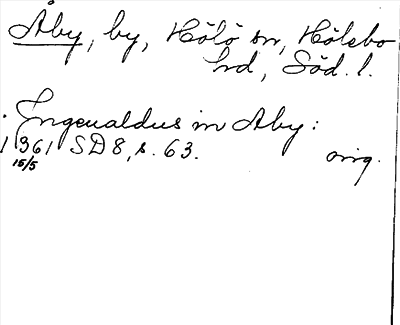 Åby, by, Hölö sn, Hölebo
hd, Söd. l.
Ingeualdus in Aby:
1361 SD8, s. 63. orig.
15/5